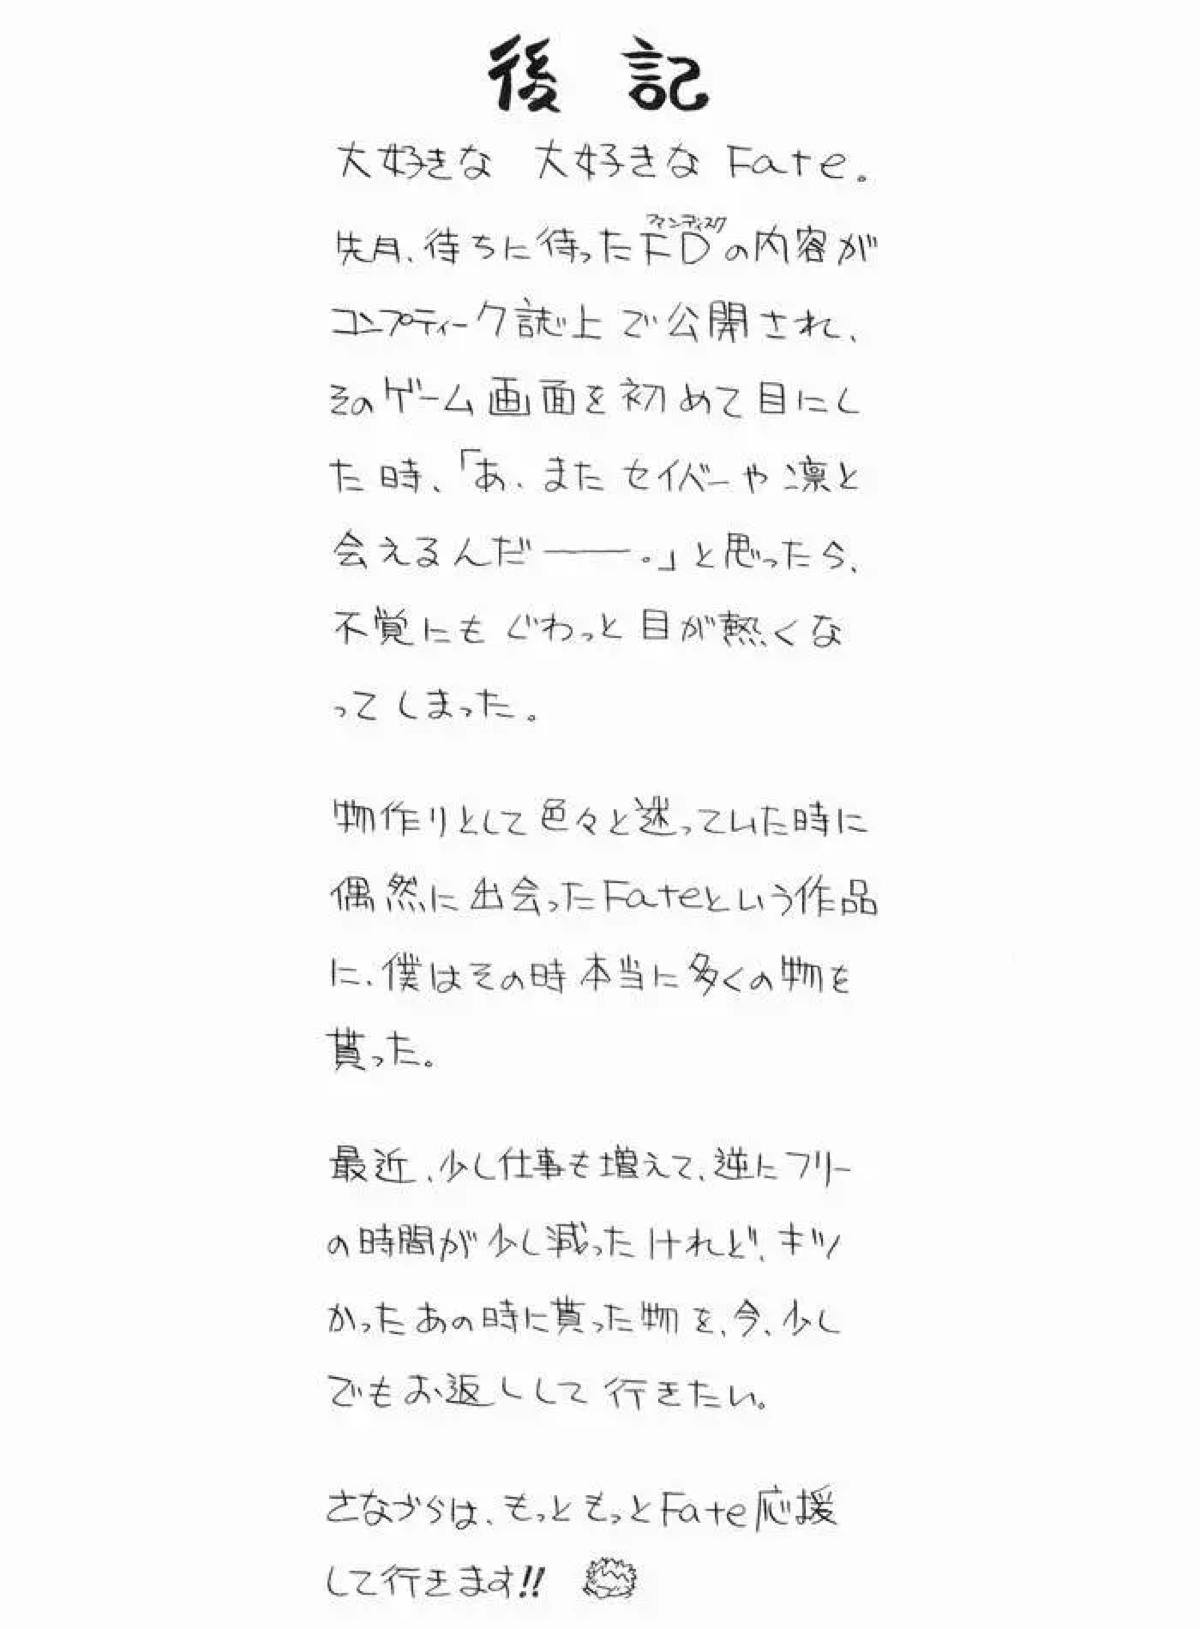 後記
大好きな 大好きな Fate。
ファンディスク
先月、待ちに待ったFDの内容が
コンプティーク誌上で公開され、
そのゲーム画面を初めて目にし
た時、「あ、またセイバーや凛と
会えるんだ――。」と思ったら、
不覚にもぐわっと目が熱くな
ってしまった。
物作りとして色々と迷っていた時に
偶然に出会ったFateという作品
に、僕はその時本当に多くの物を
貰った。
最近、少し仕事も増えて、逆にフリー
の時間が少し減ったけれど、キツ
かったあの時に貰った物を、今、少し
でもお返しして行きたい。
さながらは、もっともっとFate応援
して行きます!!